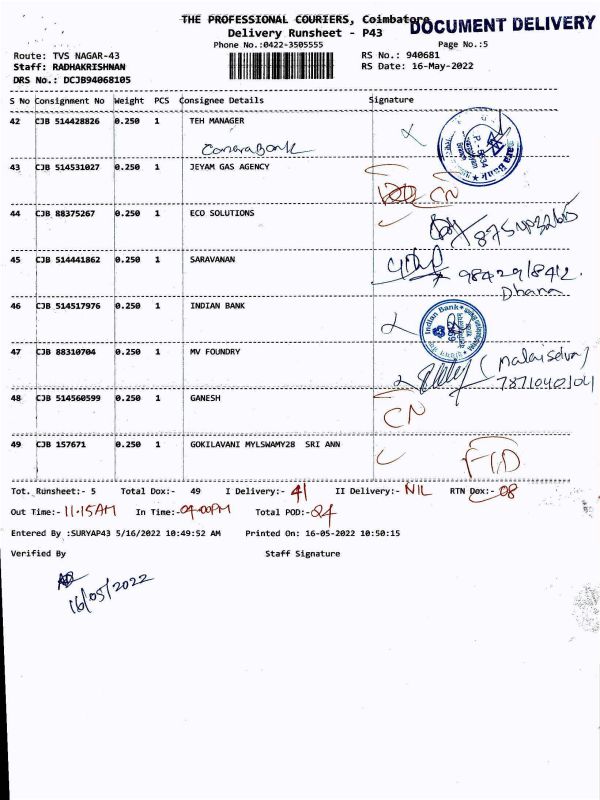 THE PROFESSIONAL COURIERS, Coimbatore
DOCUMENT DELIVERY
Delivery Runsheet - P43
Phone No.:0422-3505555
Page No.:5
Route: TVS NAGAR-43
RS No.: 940681
Staff: RADHAKRISHNAN
RS Date: 16-May-2022
DRS No.: DCJB94068105
S No Consignment No Weight PCS Consignee Details Signature
42 CJB 514428826 0.250 1 TEH MANAGER
Canara Bank
43 CJB 514531027 0.250 1 JEYAM GAS AGENCY
CN
44 CJB 88375267 0.250 1 ECO SOLUTIONS
45 CJB 514441862 0.250 1 SARAVANAN
9842918412.
Dhana
46 CJB 514517976 0.250 1 INDIAN BANK
Indian Bank
47 CJB 88310704 0.250 1 MV FOUNDRY
(Malaiselva)
7871040104
48 CJB 514560599 0.250 1 GANESH
CN
49 CJB 157671 0.250 1 GOKILAVANI MYLSWAMY28 SRI ANN
Tot. Runsheet:- 5 Total Dox:- 49 I Delivery:- 41 II Delivery:- NIL RTN Dox:- 08
Out Time:- 11.15AM In Time:- 04.00PM Total POD:- 24
Entered By :SURYAP43 5/16/2022 10:49:52 AM Printed On: 16-05-2022 10:50:15
Verified By Staff Signature
16/05/2022